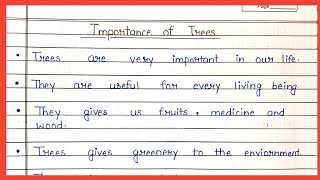 Page
Importance of Trees
• Trees are very important in our life.
• They are useful for every living being.
• They gives us fruits, medicine and
wood.
• Trees gives greenery to the enviornment.